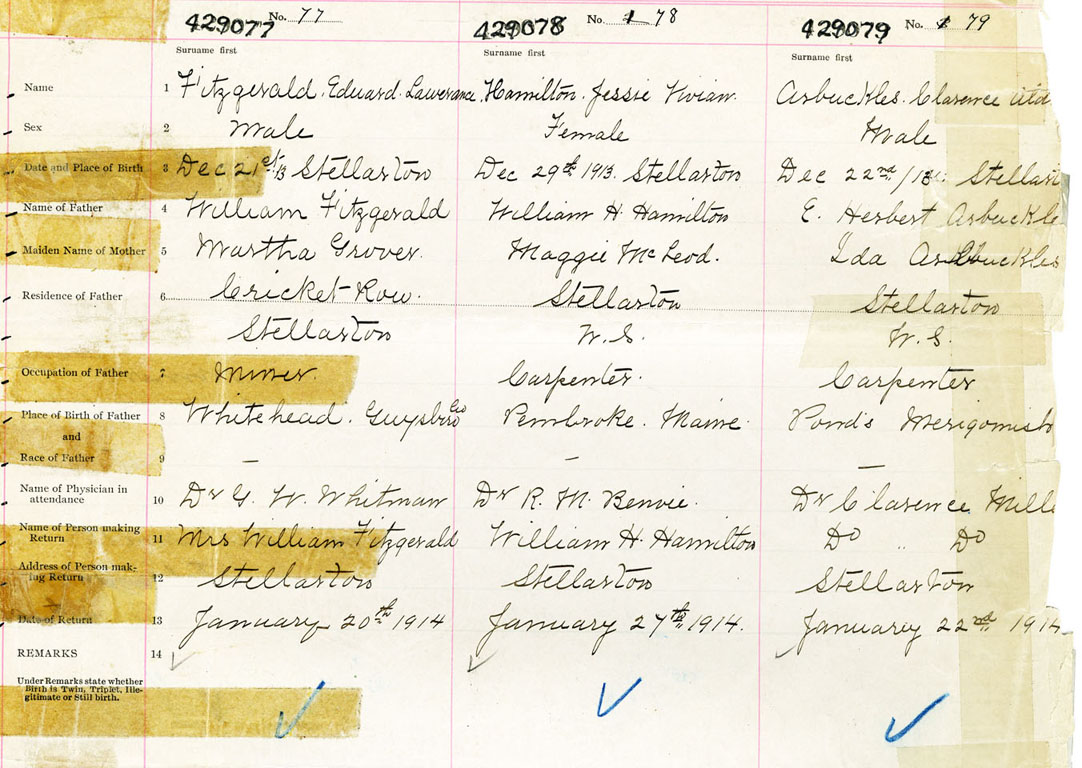 429077 No. 77 429078 No. 1 78 429079 No. 1 79
Surname first Surname first Surname first
Name 1 Fitzgerald. Eduard. Lawerance Hamilton. Jessie Vivian. Arbuckles. Clarence
Sex 2 Male Female Male
Date and Place of Birth 3 Dec 21st/13 Stellarton Dec 29th 1913. Stellarton Dec 22nd/13 Stellart
Name of Father 4 William Fitzgerald William H. Hamilton E. Herbert Arbuckle
Maiden Name of Mother 5 Martha Grover. Maggie McLeod. Ida Arbuckles
Residence of Father 6 Cricket Row. Stellarton Stellarton
Stellarton N.S. N.S.
Occupation of Father 7 Miner. Carpenter. Carpenter
Place of Birth of Father 8 Whitehead. Guysboro Co Pembroke. Maine Pond's Merigomish
and
Race of Father 9 — — —
Name of Physician in
attendance 10 Dr G. W. Whitman Dr R. M. Benvie. Dr Clarence Mille
Name of Person making
Return 11 Mrs William Fitzgerald William H. Hamilton Do " Do
Address of Person mak-
ing Return 12 Stellarton Stellarton Stellarton
Date of Return 13 January 20th 1914 January 27th 1914. January 22nd 1914
REMARKS 14
Under Remarks state whether
Birth is Twin, Triplet, Ille-
gitimate or Still birth.